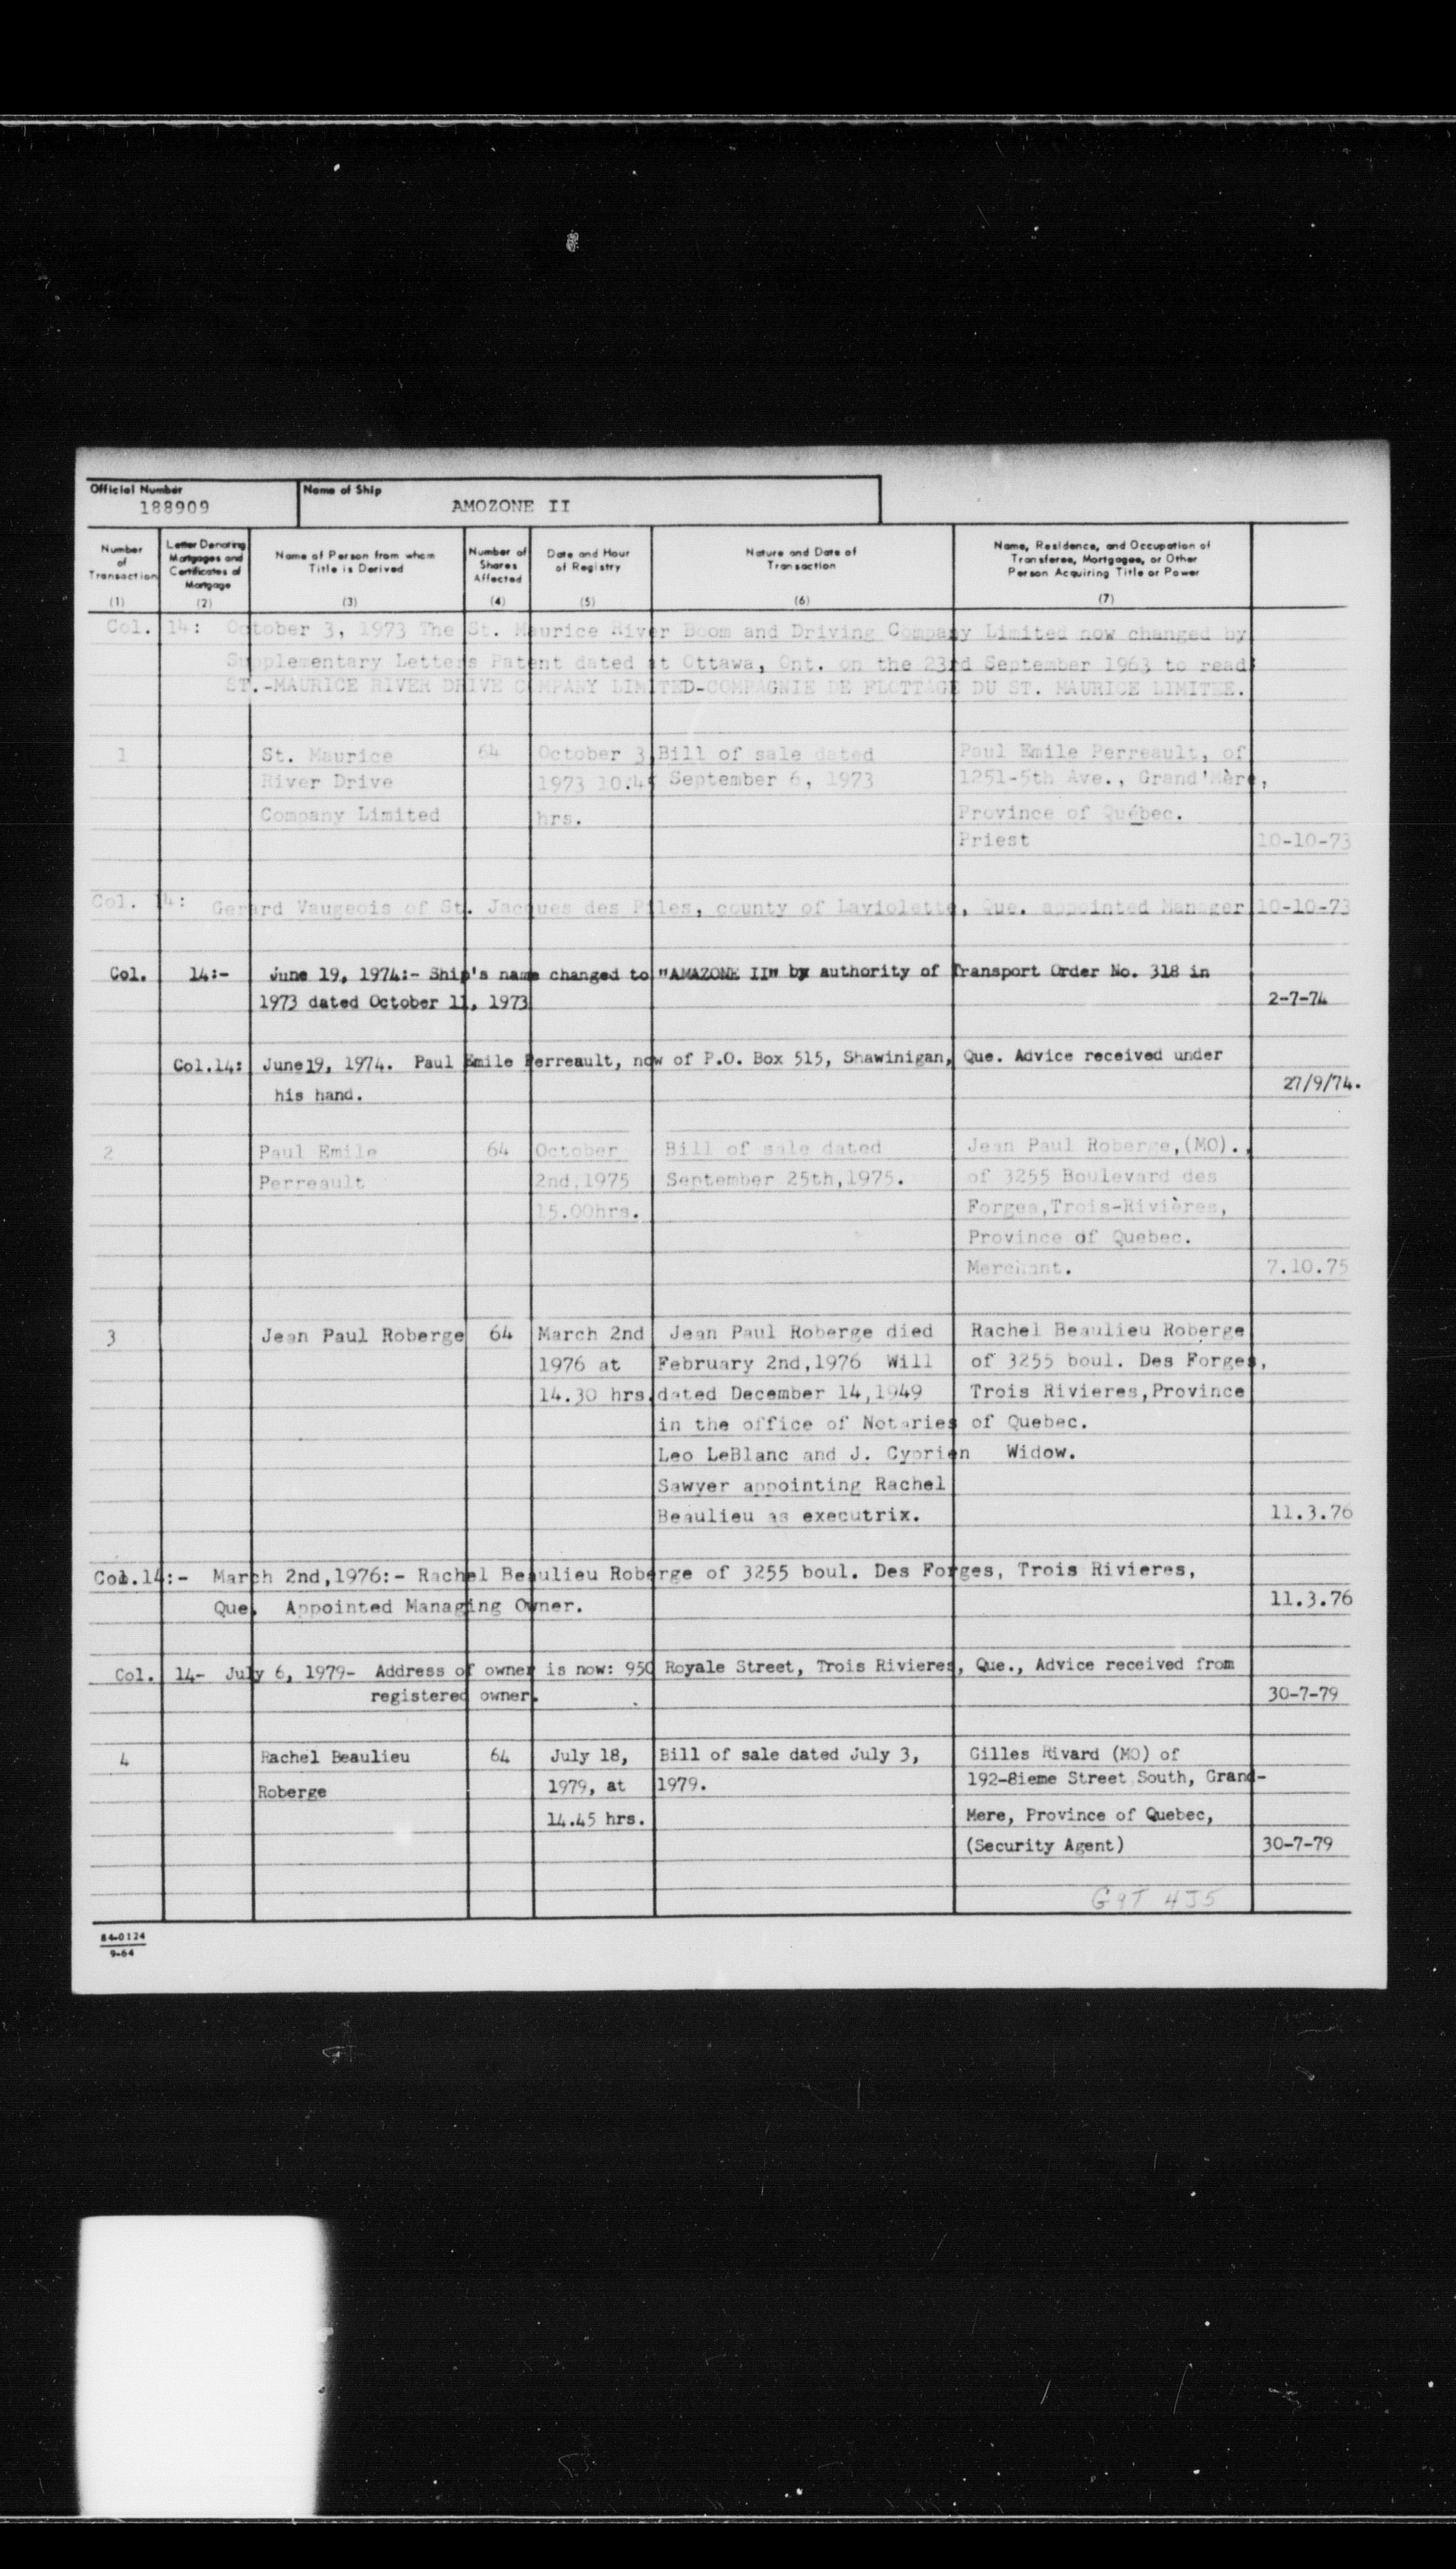 Official Number
188909
Name of Ship
AMOZONE II
Number of Transaction (1)
Letter Denoting Mortgages and Certificates of Mortgage (2)
Name of Person from whom Title is Derived (3)
Number of Shares Affected (4)
Date and Hour of Registry (5)
Nature and Date of Transaction (6)
Name, Residence, and Occupation of Transferee, Mortgagee, or Other Person Acquiring Title or Power (7)
Col. 14: October 3, 1973 The St. Maurice River Boom and Driving Company Limited now changed by
Supplementary Letters Patent dated at Ottawa, Ont. on the 23rd September 1963 to read:
ST.-MAURICE RIVER DRIVE COMPANY LIMITED-COMPAGNIE DE FLOTTAGE DU ST. MAURICE LIMITEE.
1 St. Maurice 64 October 3 Bill of sale dated Paul Emile Perreault, of
River Drive 1973 10.45 September 6, 1973 1251-5th Ave., Grand'Mère,
Company Limited hrs. Province of Québec.
Priest 10-10-73
Col. 14: Gerard Vaugeois of St. Jacques des Piles, county of Laviolette, Que. appointed Manager 10-10-73
Col. 14:- June 19, 1974:- Ship's name changed to "AMAZONE II" by authority of Transport Order No. 318 in
1973 dated October 11, 1973 2-7-74
Col.14: June19, 1974. Paul Emile Perreault, now of P.O. Box 515, Shawinigan, Que. Advice received under
his hand. 27/9/74.
2 Paul Emile 64 October Bill of sale dated Jean Paul Roberge,(MO).,
Perreault 2nd,1975 September 25th,1975. of 3255 Boulevard des
15.00hrs. Forges,Trois-Rivières,
Province of Quebec.
Merchant. 7.10.75
3 Jean Paul Roberge 64 March 2nd Jean Paul Roberge died Rachel Beaulieu Roberge
1976 at February 2nd,1976 Will of 3255 boul. Des Forges,
14.30 hrs. dated December 14,1949 Trois Rivieres,Province
in the office of Notaries of Quebec.
Leo LeBlanc and J. Cyprien Widow.
Sawyer appointing Rachel
Beaulieu as executrix. 11.3.76
Col.14:- March 2nd,1976:- Rachel Beaulieu Roberge of 3255 boul. Des Forges, Trois Rivieres,
Que. Appointed Managing Owner. 11.3.76
Col. 14- July 6, 1979- Address of owner is now: 950 Royale Street, Trois Rivieres, Que., Advice received from
registered owner. 30-7-79
4 Rachel Beaulieu 64 July 18, Bill of sale dated July 3, Gilles Rivard (MO) of
Roberge 1979, at 1979. 192-8ieme Street South, Grand-
14.45 hrs. Mere, Province of Quebec,
(Security Agent) 30-7-79
G9T 4J5
84-0124
9-64